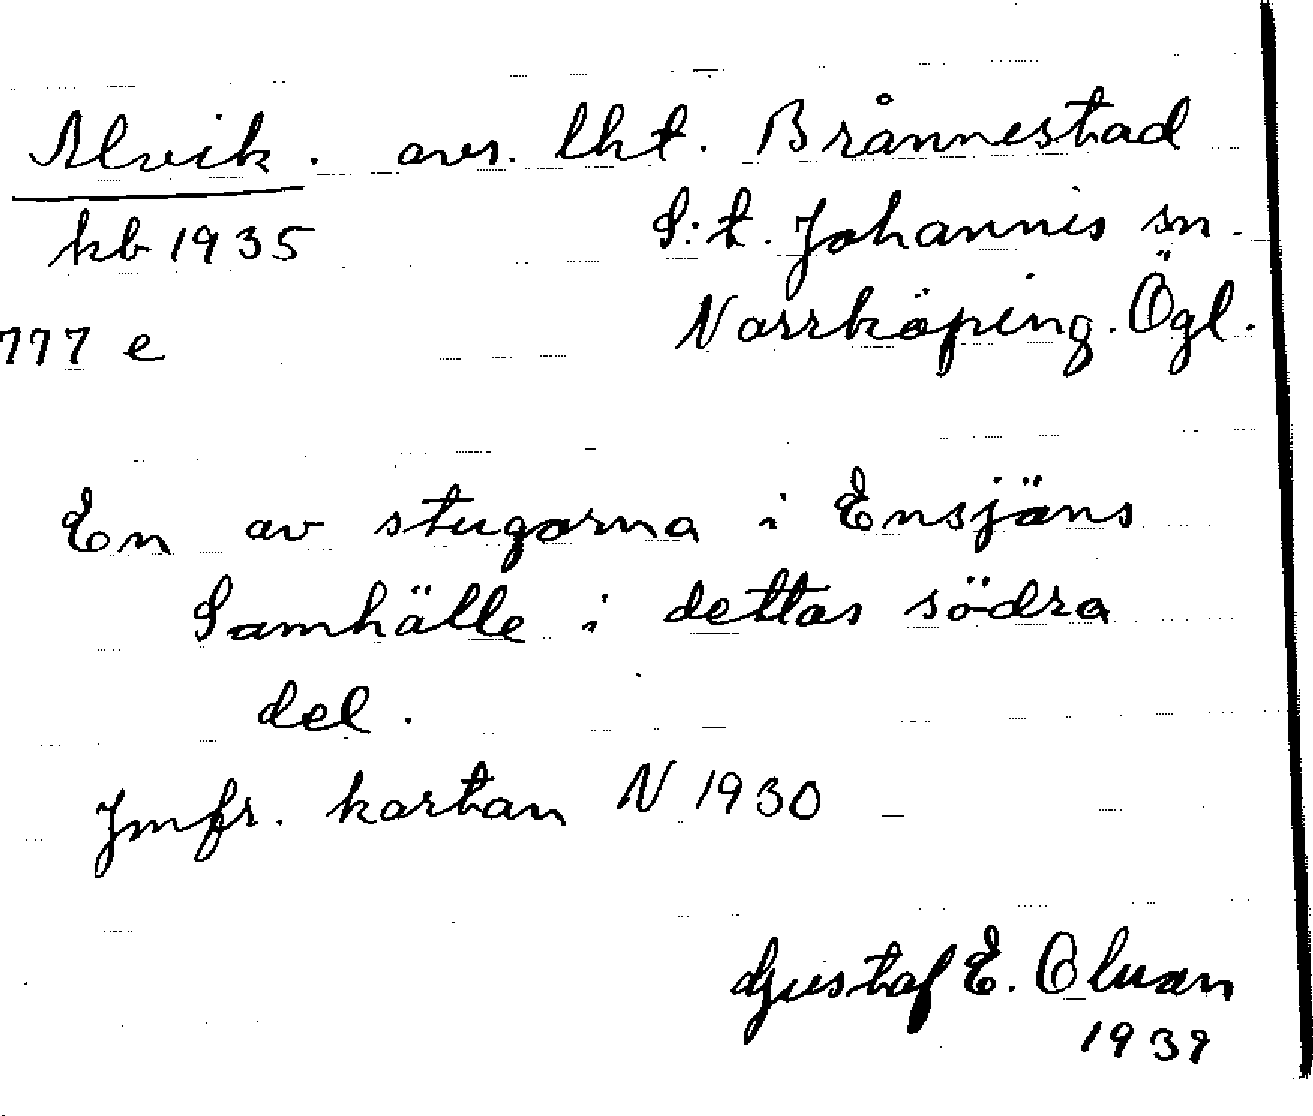 Alvik. avs. lht. Brånnestad
kb 1935 S:t. Johannis sn.
777 e Norrköping. Ögl.
En av stugorna i Ensjöns
Samhälle i dettas södra
del.
Jmfr. kartan N 1930
Gustaf E.
1939